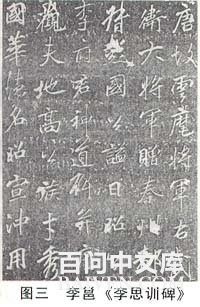 唐故雲麾將軍右武
衛大將軍贈秦州都
督彭國公謚曰昭公
李府君神道碑并序
觀夫地高公族才秀
國華德名昭宣沖用
百问中文
图三 李邕《李思训碑》